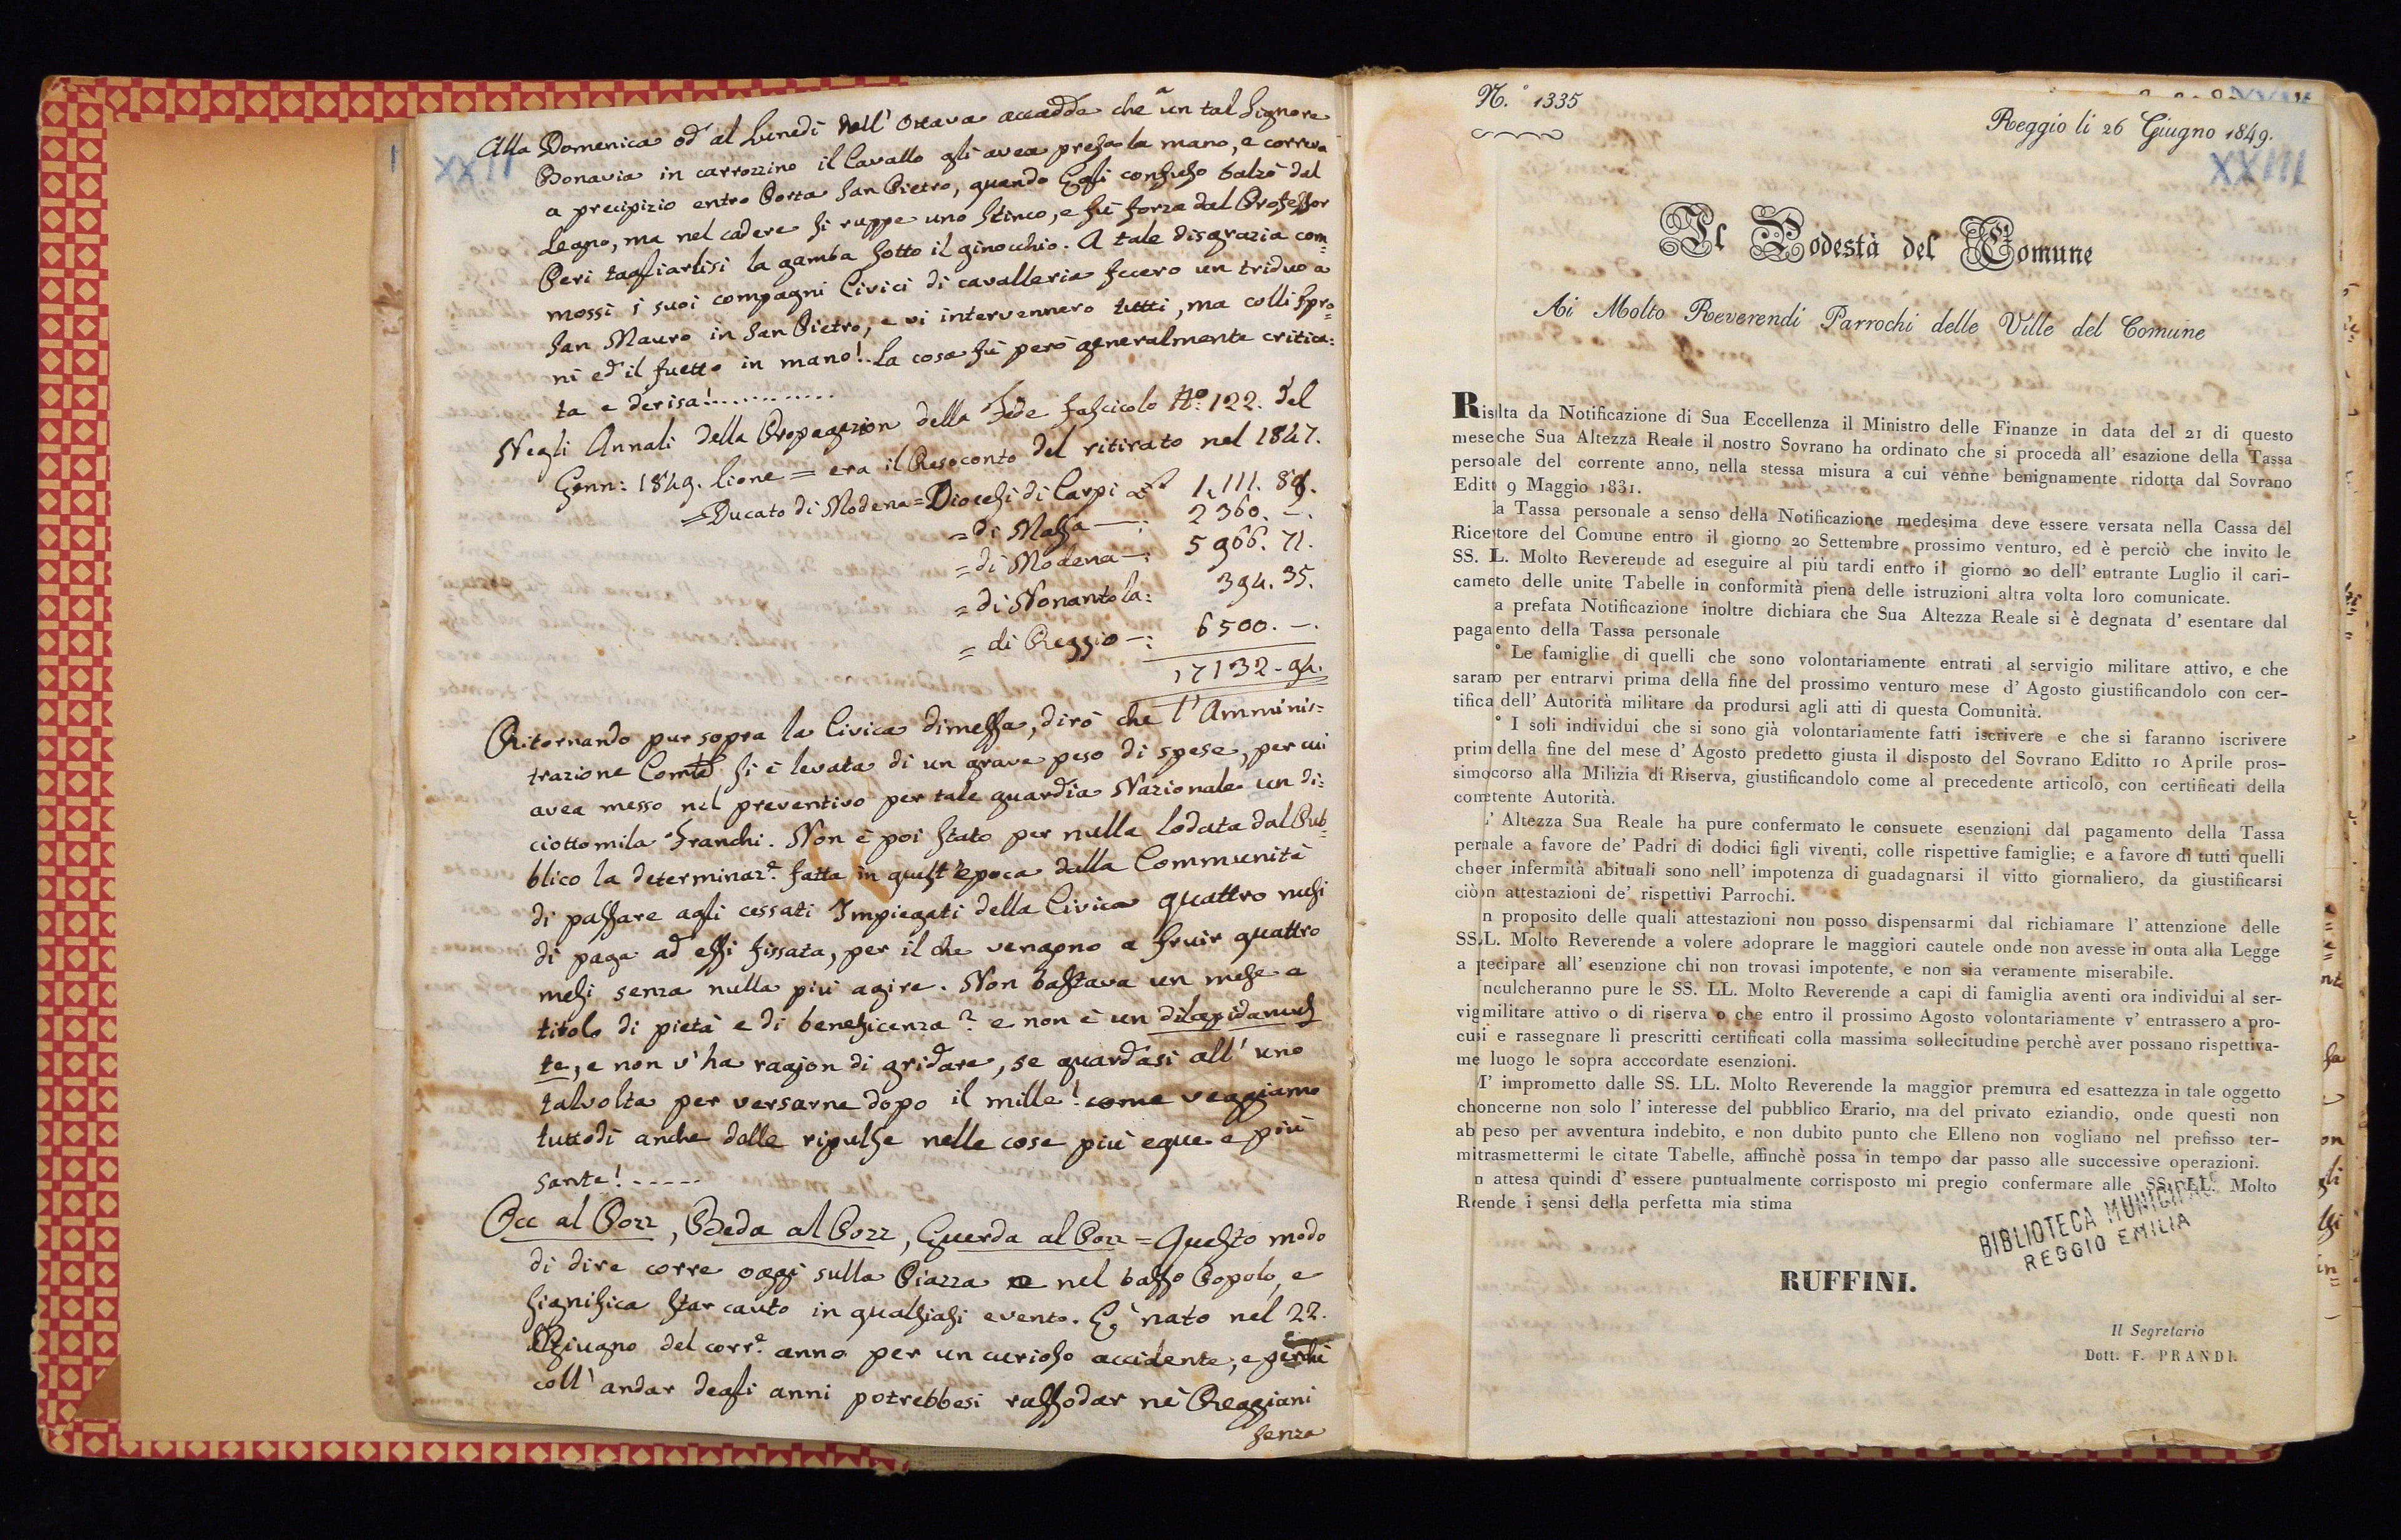 XXII
Alla Domenica od al Lunedì dell' Ottava accadde che a un tal Signore
Bonavia in carrozzino il Cavallo gli avea presa la mano, e correva
a precipizio entro Porta San Pietro, quando Egli confuso balzò dal
Legno, ma nel cadere si ruppe uno stinco, e fù forza dal Professor
Peri tagliarlisi la gamba sotto il ginocchio. A tale disgrazia com=
mossi i suoi compagni Civici di cavalleria fecero un triduo a
San Mauro in San Pietro, e vi intervennero tutti, ma colli spro=
ni ed il fuetto in mano! La cosa fù però generalmente critica=
ta e derisa!...........
Negli Annali della Propagazion della Fede fascicolo No. 122. del
Genn: 1849. Lione = era il Resoconto del ritirato nel 1847.
=Ducato di Modena = Diocesi di Carpi 1,111. 88.
= di Massa —: 2360. —.
= di Modena —: 5966. 71.
= di Nonantola: 394. 35.
= di Reggio —: 6500. —.
17132-94.
Ritornando pur sopra la Civica dimessa, dirò che l'Amminis=
trazione Comte si è levata di un grave peso di spese, per cui
avea messo nel preventivo per tale guardia Nazionale un di=
ciottomila Franchi. Non è poi stato per nulla lodata dal Pub=
blico la determinaze. fatta in quest'epoca dalla Communità
di passare agli cessati Impiegati della Civica quattro mesi
di paga ad essi fissata, per il che vengono a fruir quattro
mesi senza nulla più agire. Non bastava un mese a
titolo di pietà e di beneficenza? e non è un dilapidamen
te, e non v'ha ragion di gridare, se guardasi all' uno
talvolta per versarne dopo il mille! come veggiamo
tuttodì anche dalle ripulse nelle cose più eque e più
sante!.....
Occ al Pozz, Beda al Pozz, Guerda al Pozz = Questo modo
di dire corre oggi sulla Piazza e nel basso Popolo, e
significa star cauto in qualsiasi evento. E' nato nel 22.
Giugno del corre. anno per un curioso accidente, e perchè
coll' andar degli anni potrebbesi rassodar nè Reggiani
senza
N.° 1335
Reggio li 26 Giugno 1849.
XXIII
Il Podestà del Comune
Ai Molto Reverendi Parrochi delle Ville del Comune
Risulta da Notificazione di Sua Eccellenza il Ministro delle Finanze in data del 21 di questo
mese che Sua Altezza Reale il nostro Sovrano ha ordinato che si proceda all' esazione della Tassa
persoale del corrente anno, nella stessa misura a cui venne benignamente ridotta dal Sovrano
Editt 9 Maggio 1831.
la Tassa personale a senso della Notificazione medesima deve essere versata nella Cassa del
Ricevtore del Comune entro il giorno 20 Settembre prossimo venturo, ed è perciò che invito le
SS. L. Molto Reverende ad eseguire al più tardi entro il giorno 20 dell' entrante Luglio il cari-
cameto delle unite Tabelle in conformità piena delle istruzioni altra volta loro comunicate.
a prefata Notificazione inoltre dichiara che Sua Altezza Reale si è degnata d' esentare dal
pagaento della Tassa personale
° Le famiglie di quelli che sono volontariamente entrati al servigio militare attivo, e che
sarano per entrarvi prima della fine del prossimo venturo mese d' Agosto giustificandolo con cer-
tifica dell' Autorità militare da prodursi agli atti di questa Comunità.
° I soli individui che si sono già volontariamente fatti iscrivere e che si faranno iscrivere
prim della fine del mese d' Agosto predetto giusta il disposto del Sovrano Editto 10 Aprile pros-
simocorso alla Milizia di Riserva, giustificandolo come al precedente articolo, con certificati della
cometente Autorità.
L' Altezza Sua Reale ha pure confermato le consuete esenzioni dal pagamento della Tassa
pernale a favore de' Padri di dodici figli viventi, colle rispettive famiglie; e a favore di tutti quelli
cheer infermità abituali sono nell' impotenza di guadagnarsi il vitto giornaliero, da giustificarsi
ciòn attestazioni de' rispettivi Parrochi.
n proposito delle quali attestazioni nou posso dispensarmi dal richiamare l' attenzione delle
SS.L. Molto Reverende a volere adoprare le maggiori cautele onde non avesse in onta alla Legge
a ptecipare all' esenzione chi non trovasi impotente, e non sia veramente miserabile.
nculcheranno pure le SS. LL. Molto Reverende a capi di famiglia aventi ora individui al ser-
vigmilitare attivo o di riserva o che entro il prossimo Agosto volontariamente v' entrassero a pro-
cusi e rassegnare li prescritti certificati colla massima sollecitudine perchè aver possano rispettiva-
me luogo le sopra acccordate esenzioni.
M' imprometto dalle SS. LL. Molto Reverende la maggior premura ed esattezza in tale oggetto
choncerne non solo l' interesse del pubblico Erario, ma del privato eziandio, onde questi non
ab peso per avventura indebito, e non dubito punto che Elleno non vogliano nel prefisso ter-
mitrasmettermi le citate Tabelle, affinchè possa in tempo dar passo alle successive operazioni.
n attesa quindi d' essere puntualmente corrisposto mi pregio confermare alle SS. LL. Molto
Rende i sensi della perfetta mia stima
BIBLIOTECA MUNICIPALE
REGGIO EMILIA
RUFFINI.
Il Segretario
Dott. F. PRANDI.